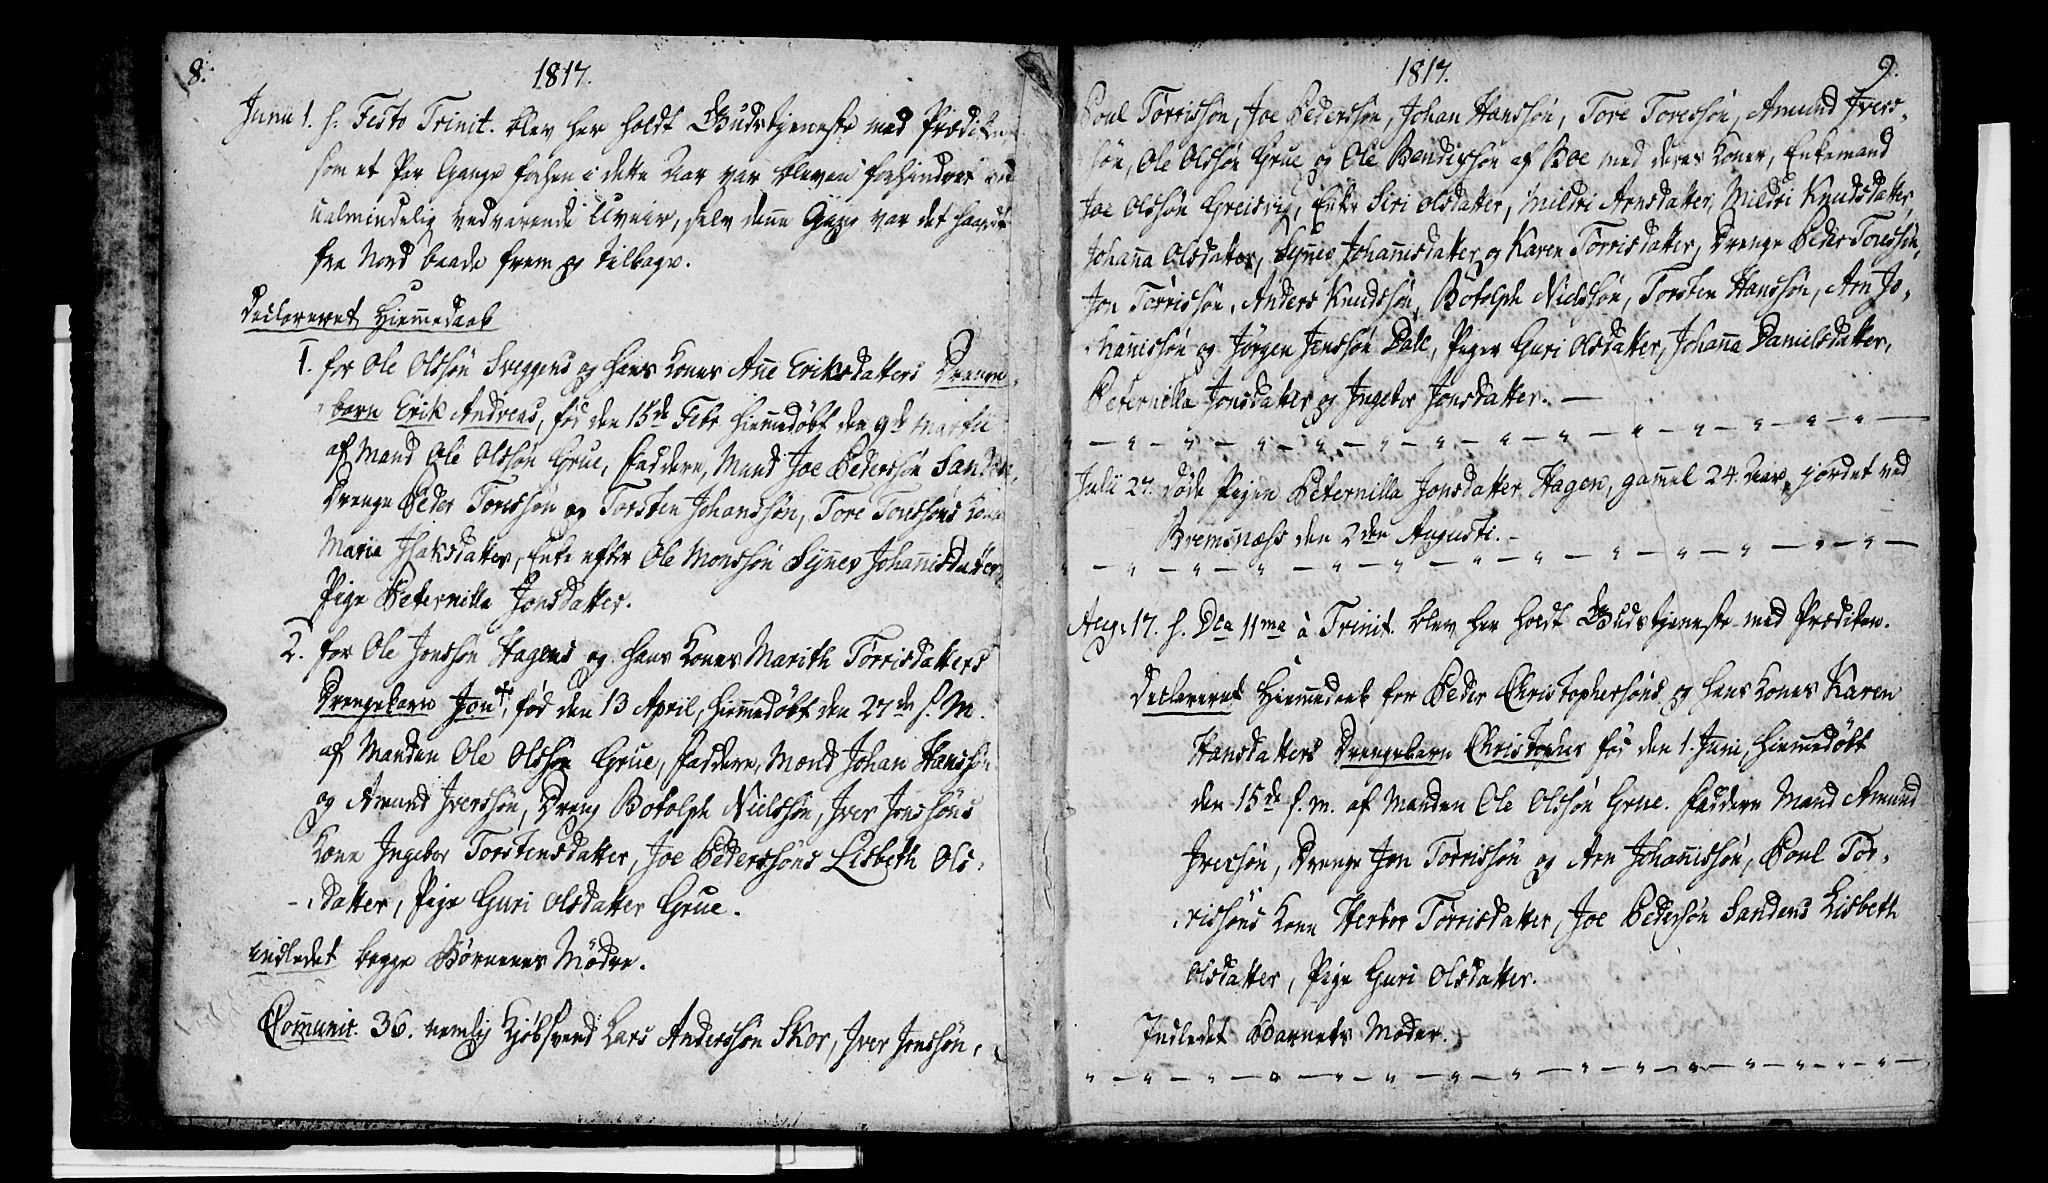 8.
1817.
Junii 1. h. Festo Trinit. blev her holdt Gudstjeneste med Prædiken
som et Par Gange forhen i dette Aar var bleven forhindret ved
ualmindelig vedvarende Uveir, selv denne Gang var det haardt
fra Nord baade frem og tilbage.
Declareret Hiem̄edaab
1. for Ole Olssön Sveggens og hans Kones An̄e Eriksdatters Drenge-
barn Erik Andreas, fød den 15de Febr hiem̄edöbt den 9de Martii
af Mand Ole Olssön Grue, Faddere, Mand Joe Pederssön Sanden,
Drenge Peder Toressön og Torsten Johanssön, Tore Toressöns Kone
Maria Isaksdatter, Enke efter Ole Monssön Synev Johan̄isdatter,
Pige Peternilla Jonsdatter.
2. for Ole Jonssön Hagens og hans Kones Marith Törrisdatters
Drengebarn Jon +, fød den 13 April, hiem̄edöbt den 27de s. M.
af Manden Ole Olssön Grue, Faddere, Mænd Johan Hanssön
og Amund Iverssön, Dreng Botolph Nielssön, Iver Jonssöns
Kone Ingebor Torstensdatter, Joe Pederssöns Lisbeth Ols-
datter, Pige Guri Olsdatter Grue.
indledet begge Börnenes Mödre.
Com̄unic. 36. nemlig Kjøbsvend Lars Anderssön Skor, Iver Jonssön,
9.
1817.
Poul Törrissön, Joe Pederssön, Johan Hanssön, Tore Toressön, Amund Ivers-
sön, Ole Olssön Grue og Ole Bendixsön af Boe med deres Koner, Enkemand
Joe Olssön Greisvig, Enke Siri Olsdatter, Mildri Arnsdatter, Mildri Knudsdatter,
Johan̄a Olsdatter, Synev Johan̄isdatter og Karen Törrisdatter, Drenge Peder Toressön,
Jon Törrissön, Anders Knudssön, Botolph Nielssön, Torsten Hanssön, Arn Jo-
han̄issön og Jörgen Jenssön Dale, Piger Guri Olsdatter, Johan̄a Danielsdatter,
Peternilla Jonsdatter og Ingebor Jonsdatter. —
Julii 27. døde Pigen Peternilla Jonsdatter Hagen, gam̄el 24. Aar, jordet ved
Bremsnæss den 2den Augusti. —
Aug: 17. h. Dca 11ma à Trinit. blev her holdt Gudstjeneste med Prædiken.
Declareret Hiem̄edaab for Peder Christopherssöns og hans Kones Karen
Hansdatters Drengebarn Christopher fød den 1. Juni, hiem̄edöbt
den 15de s. m. af Manden Ole Olssön Grue. Faddere Mand Amund
Iverssön, Drenge Jon Törrissön og Arn Johan̄issön, Poul Tör-
rissöns Kone Herbor Törrisdatter, Joe Pederssön Sandens Lisbeth
Olsdatter, Pige Guri Olsdatter.
Indledet Barnets Moder.